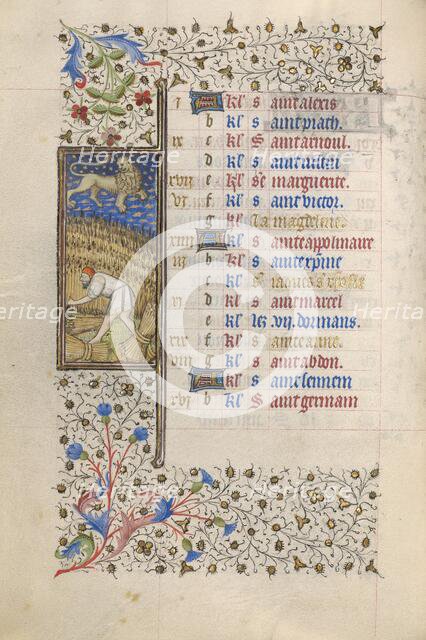 i A kl' s aint alexis
b kl' s aint prath.
ix c kl' S aint arnoul.
d kl' s aint
xvii e kl' Ste marguerite.
vi f kl' s aint victor.
g kl' La magdeleine.
xiiii A kl' s aint appolinaire
iii b kl' s ainte xpine
c kl' s iaques s xpofle
xi d kl' s aint marcel
e kl' les vii. dormans.
xix f kl' s ainte anne.
viii g kl' s aint abdon.
A kl' s aint sennem
xvi b kl' S aint germain
Heritage Images